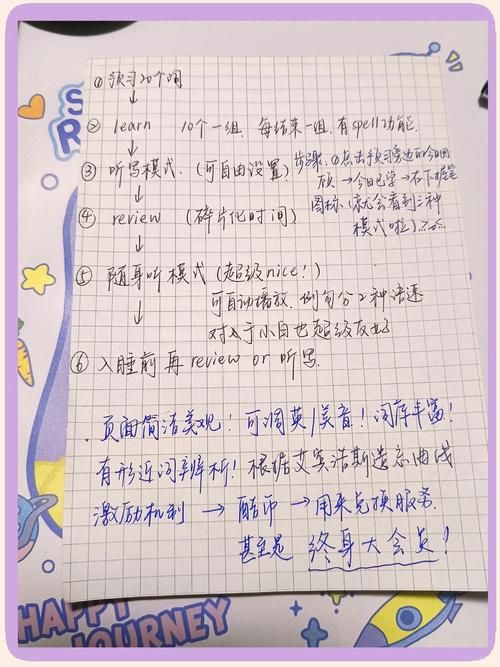 ① 预习20个词
↓
② learn 10个一组，每结束一组，有spell功能.
↓
③ 听写模式.（可自由设置）
步骤：①点击预习旁边的今日回
放→今日已学→右下摇笔
图标（就会看到三种
模式啦）
↓
④ review （碎片化时间）
↓
⑤ 随身听模式（超级nice！）
可自动播放，例句分2种倍速
↓
对于小白也超级友好
⑥ 入睡前再review or 听写.
. 页面简洁美观！可调英/美音！词库丰富！
有形近词辨析！根据艾宾浩斯遗忘曲线
激励机制 → 酷币 → 用来兑换服务.
甚至是 终身大会员！
HAPPY
JOURNEY